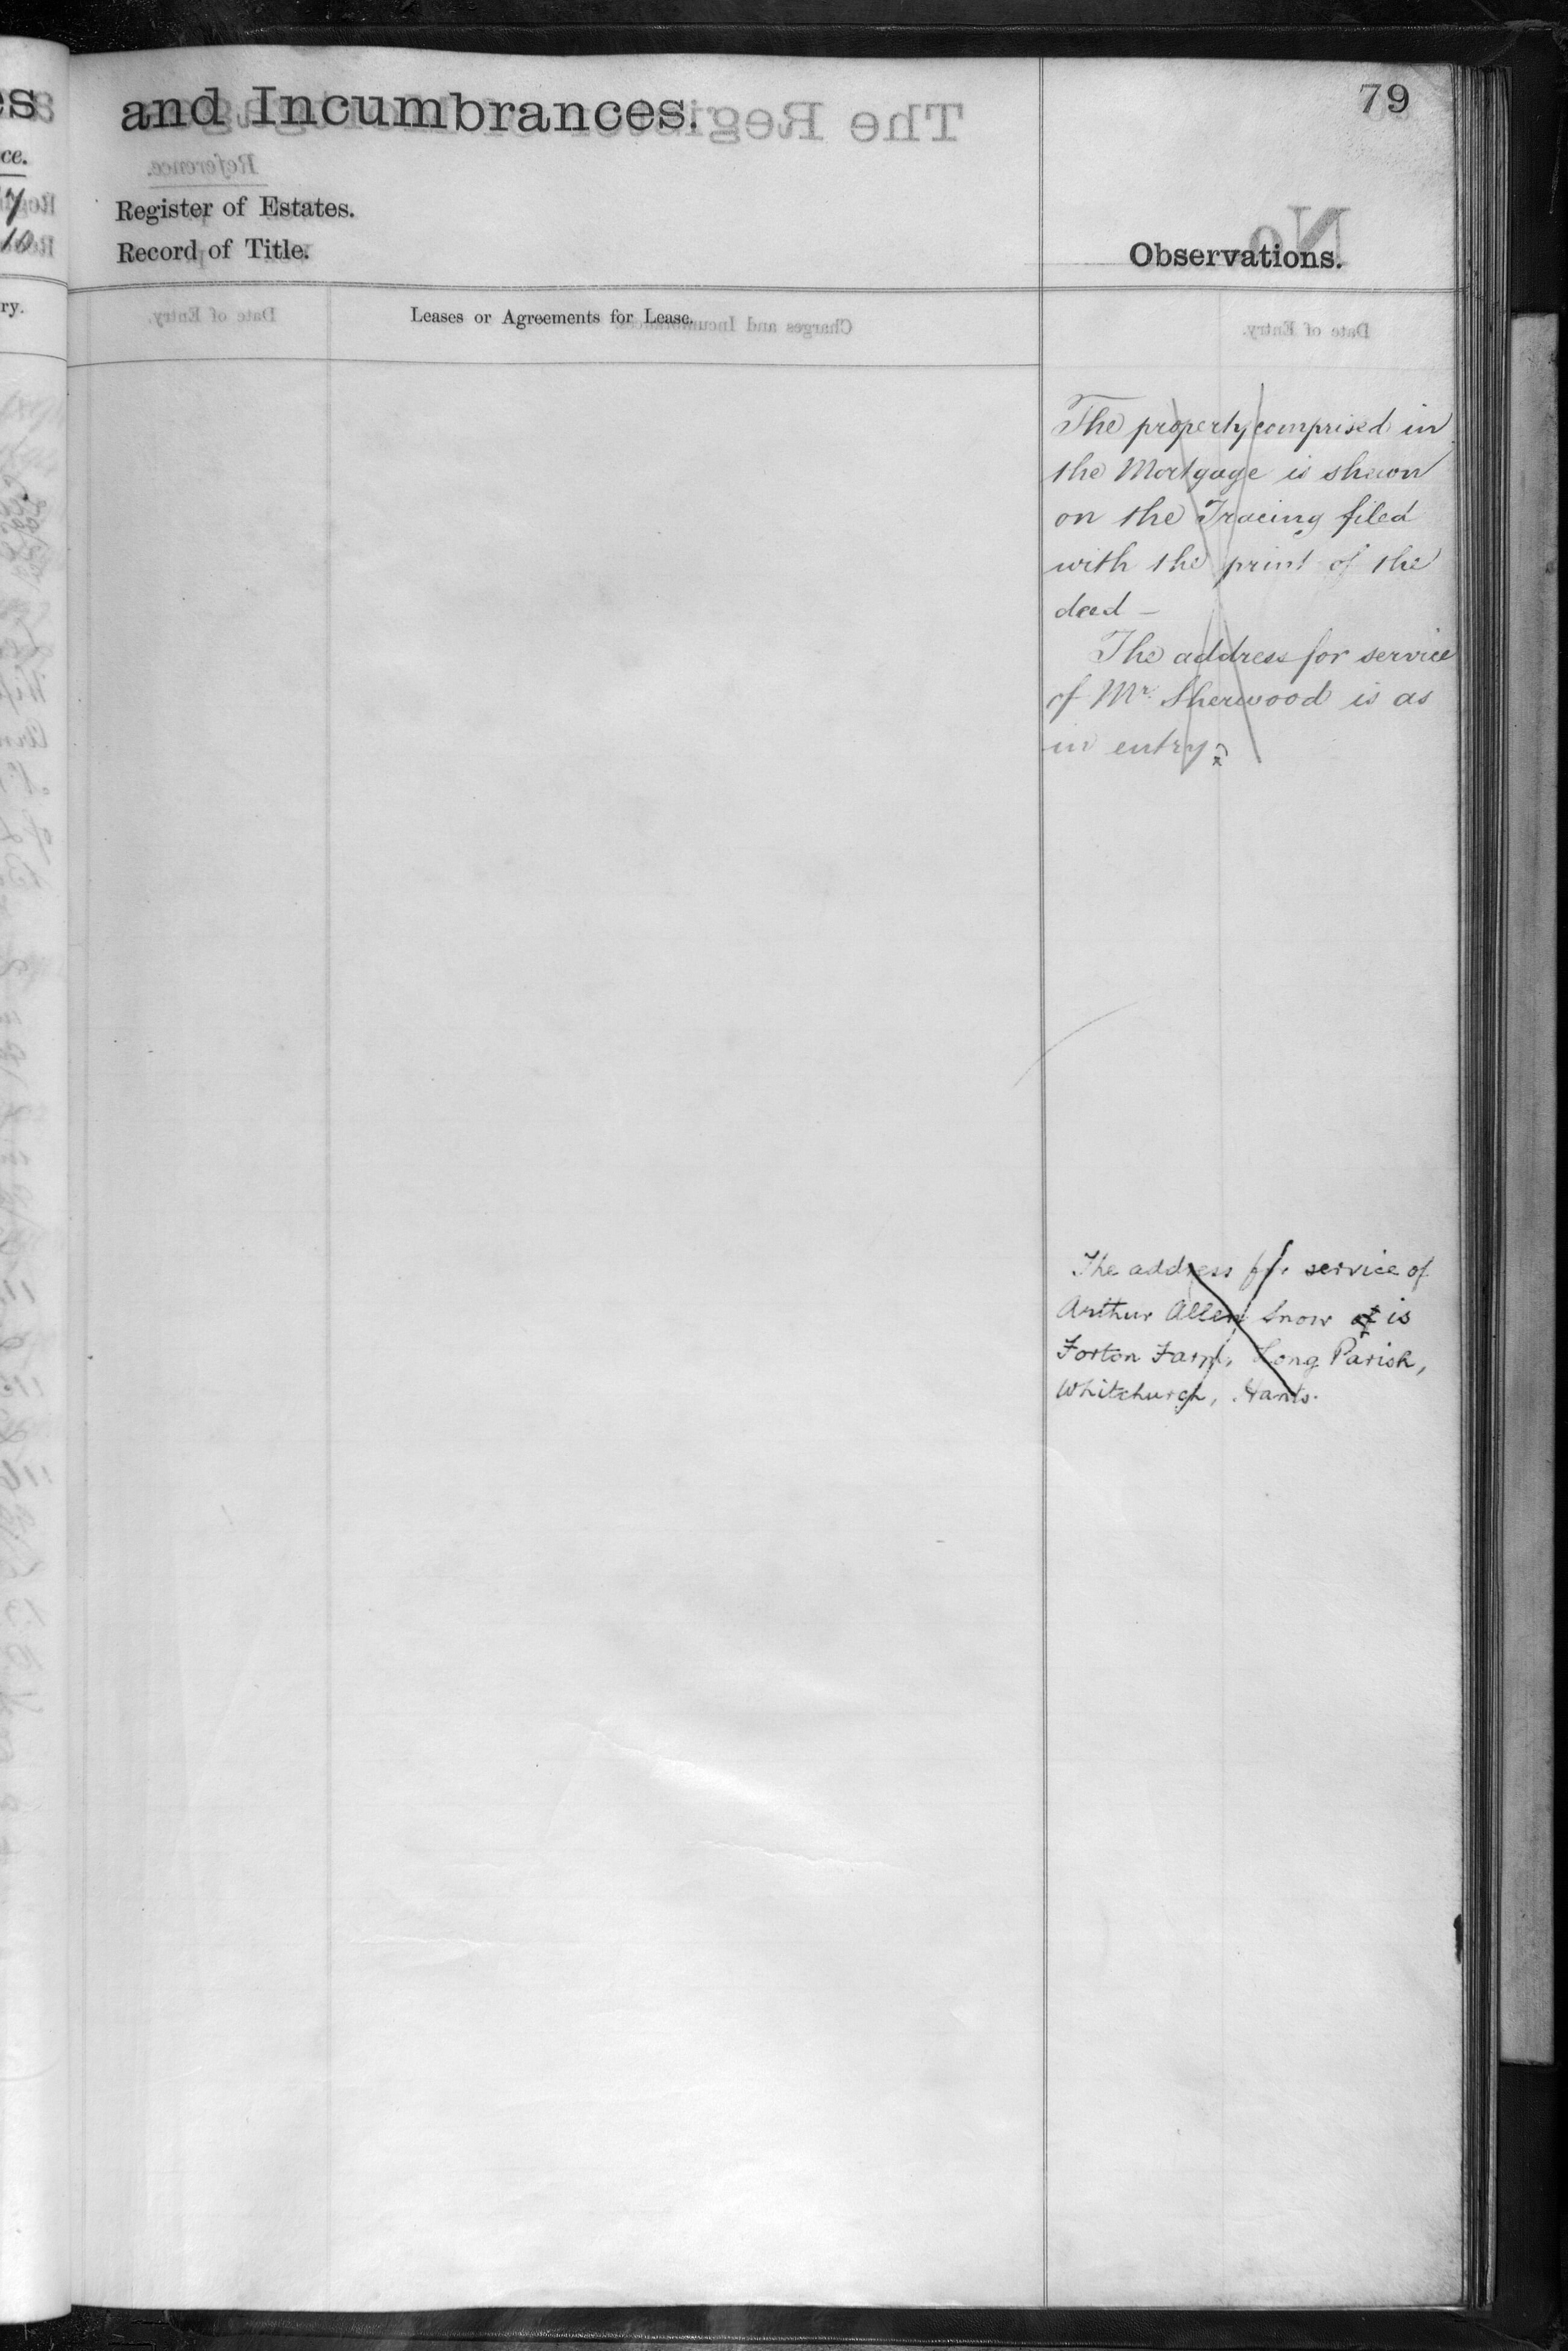 and Incumbrances.
79
Register of Estates.
Record of Title.
Observations.
Leases or Agreements for Lease.
The property comprised in
the Mortgage is shewn
on the Tracing filed
with the print of the
deed —
The address for service
of Mr. Sherwood is as
in entry
The address for service of
Arthur Allen Snow is
Forton Farm, Long Parish,
Whitchurch, Hants.